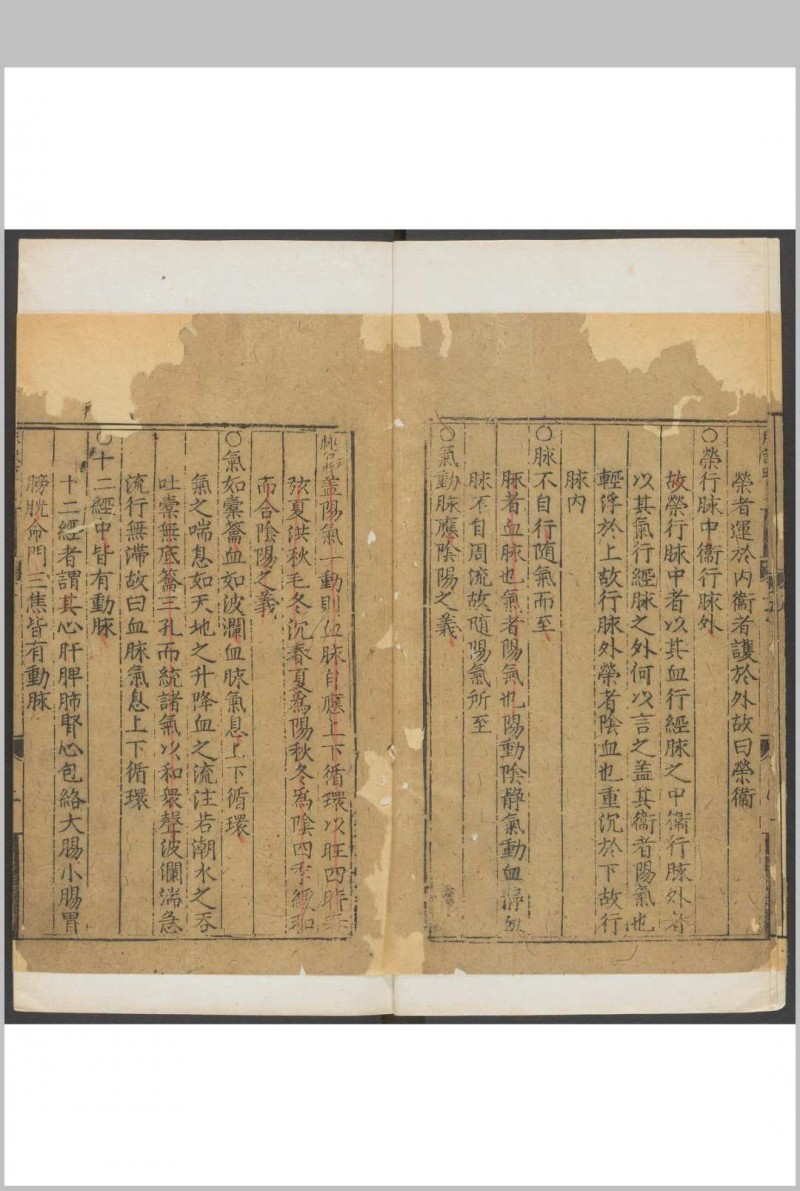 榮者運於內衞者護於外故曰榮衞
〇榮行脉中衞行脉外
故榮行脉中者以其血行經脉之中衞行脉外者
以其氣行經脉之外何以言之盖其衞者陽氣也
輕浮於上故行脉外榮者陰血也重沉於下故行
脉內
〇脉不自行隨氣而至
脉者血脉也氣者陽氣也陽動陰靜氣動血靜血
脉不自周流故隨陽氣所至
〇氣動脉應陰陽之義
盖陽氣一動則血脉自應上下循環以旺四時春
弦夏洪秋毛冬沉春夏爲陽秋冬爲陰四季緩和
而合陰陽之義
〇氣如橐籥血如波瀾血脉氣息上下循環
氣之喘息如天地之升降血之流注若潮水之吞
吐橐無底籥三孔而統諸氣以和衆聲波瀾湍急
流行無滯故曰血脉氣息上下循環
〇十二經中皆有動脉
十二經者謂其心肝脾肺腎心包絡大腸小腸胃
膀胱命門三焦皆有動脉